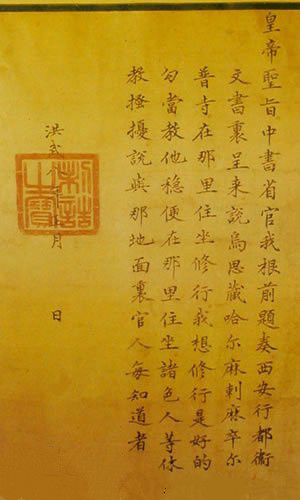 皇帝聖旨中書省官我根前題奏西安行都衛
文書裏呈来說烏思藏哈尔麻剌麻卒尔
普寺在那里住坐修行我想修行是好的
勾當教他穩便在那里住坐諸色人等休
教搔擾說與那地面裏官人每知道者
洪武 月 日
制誥之寶